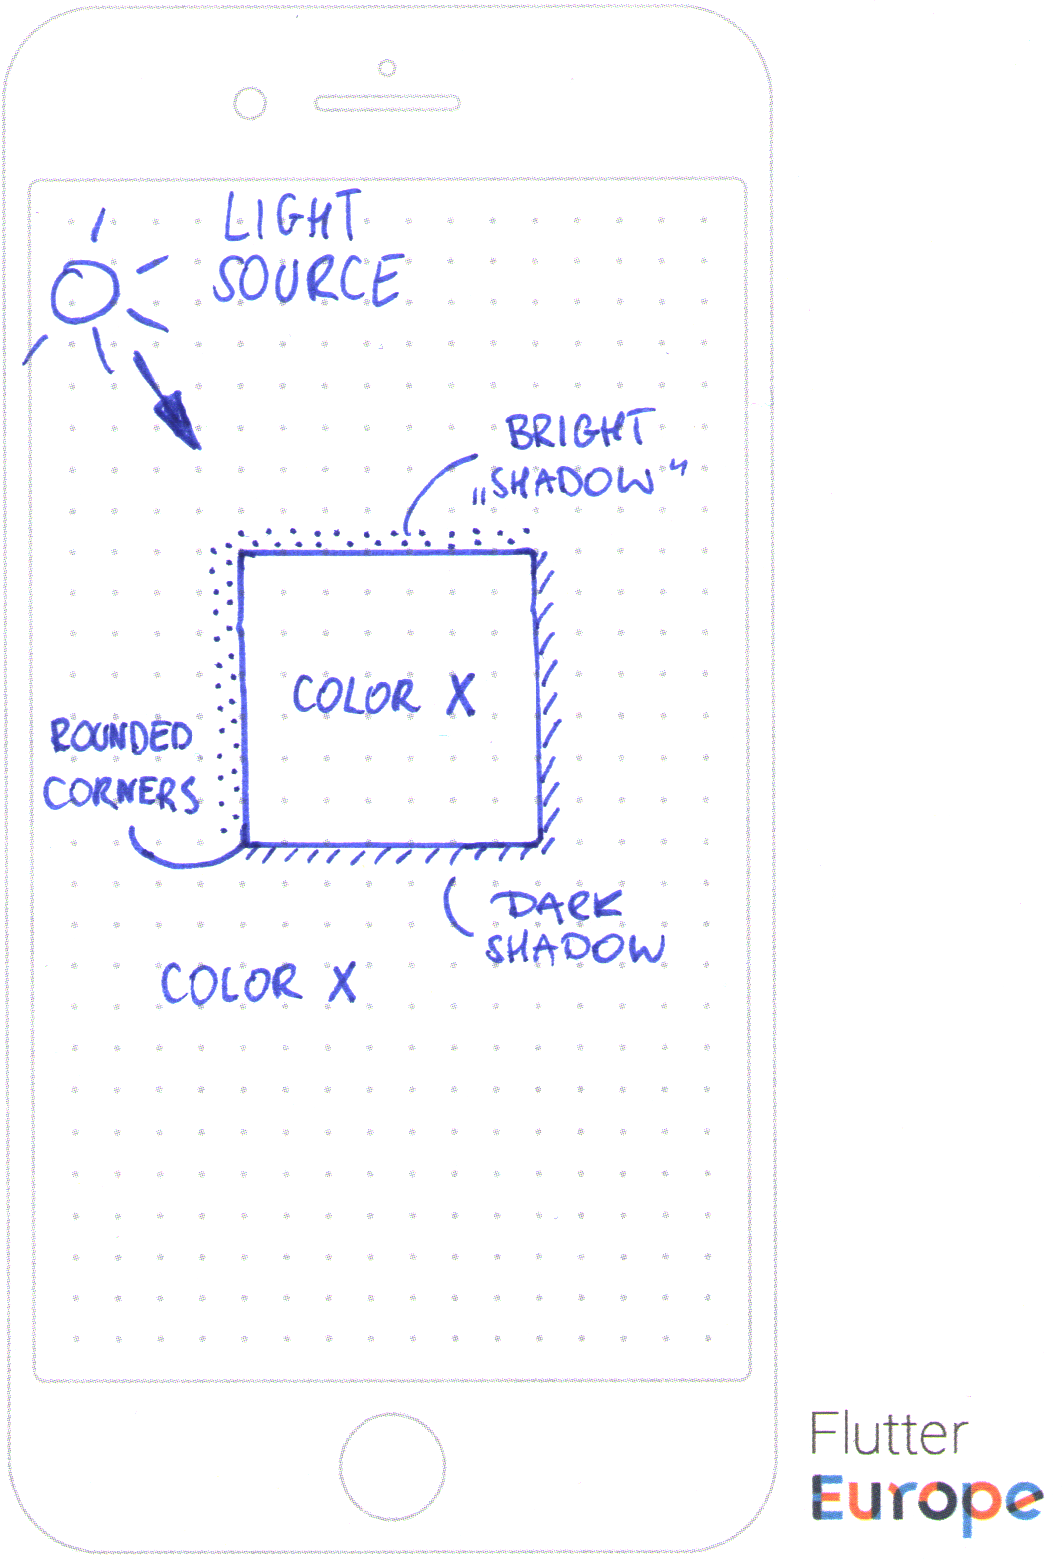 LIGHT
SOURCE
BRIGHT
„SHADOW“
COLOR X
ROUNDED
CORNERS
DARK
SHADOW
COLOR X
Flutter
Europe